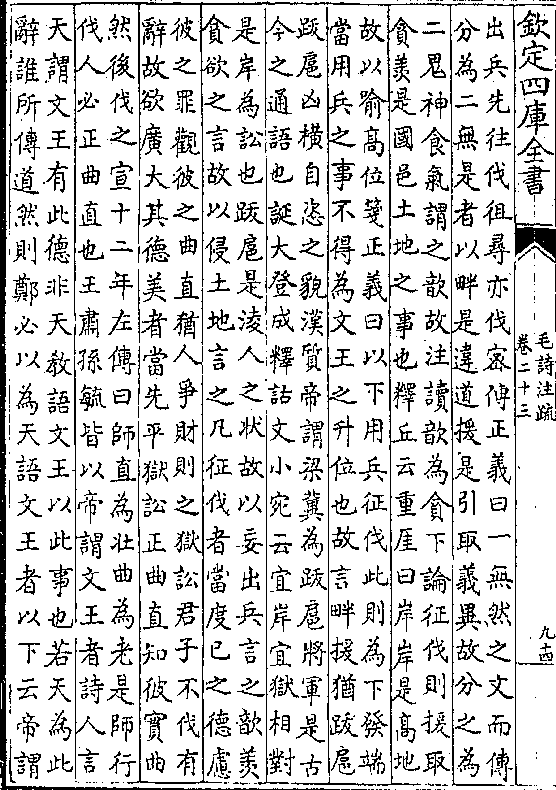 欽定四庫全書
毛詩注疏
卷二十三
出兵先往伐徂尋亦伐密傳正義曰一無然之文而傳
分為二無是者以畔是違道援是引取義異故分之為
二鬼神食氣謂之歆故注讀歆為貪下論征伐則援取
貪羨是國邑土地之事也釋丘云重厓曰岸岸是高地
故以喻高位箋正義曰以下用兵征伐此則為下發端
當用兵之事不得為文王之升位也故言畔援猶跋扈
跋扈凶橫自恣之貌漢質帝謂梁冀為跋扈將軍是古
今之通語也誕大登成釋詁文小宛云宜岸宜獄相對
是岸為訟也跋扈是淩人之狀故以妄出兵言之歆羨
貪欲之言故以侵土地言之凡征伐者當度已之德慮
彼之罪觀彼之曲直猶人爭財則之獄訟君子不伐有
辭故欲廣大其德美者當先平獄訟正曲直知彼實曲
然後伐之宣十二年左傳曰師直為壯曲為老是師行
伐人必正曲直也王肅孫毓皆以帝謂文王者詩人言
天謂文王有此德非天教語文王以此事也若天為此
辭誰所傳道然則鄭必以為天語文王者以下云帝謂
九十四